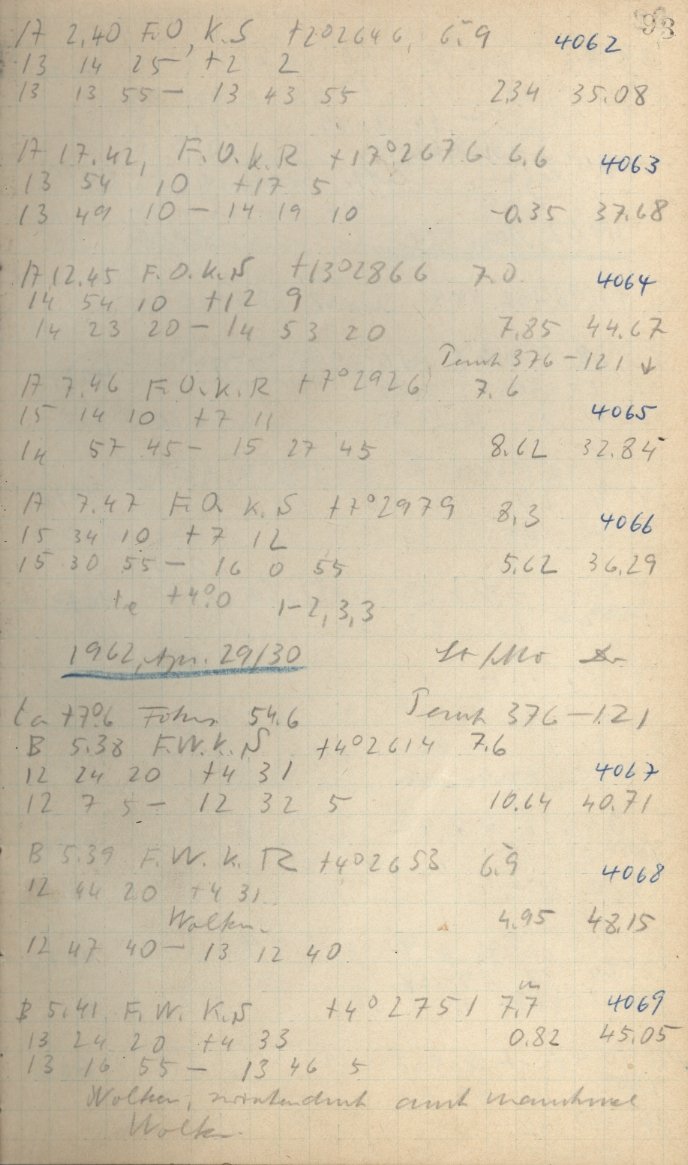 93
A 2.40 F.O, K.S +2°2646, 6.9 4062
13 14 25 +2 2
13 13 55 – 13 43 55 2.34 35.08
A 17.42, F.O.K.R +17°2676 6.6 4063
13 54 10 +17 5
13 49 10 – 14 19 10 -0.35 37.68
A 12.45 F.O.K.S +13°2866 7.0 4064
14 54 10 +12 9
14 23 20 – 14 53 20 7.85 44.67
376 – 121 ↓
A 7.46 F.O.K.R +7°2926 7.6
15 14 10 +7 11 4065
14 57 45 – 15 27 45 8.62 32.84
A 7.47 F.O. K.S +7°2979 8,3 4066
15 34 10 +7 12
15 30 55 – 16 0 55 5.62 36.29
te +4°.0 1–2,3,3
1962, Apr. 29/30
ta +7°6 Fokus 54.6 376 – 121
B 5.38 F.W.K.S +4°2614 7.6
12 24 20 +4 31 4067
12 7 5 – 12 32 5 10.64 40.71
B 5.39 F.W.K.R +4°2653 6.9 4068
12 44 20 +4 31
Wolken. 4.95 48.15
12 47 40 – 13 12 40
B 5.41 F.W. K.S +4°2751 7.7 4069
13 24 20 +4 33 0.82 45.05
13 16 55 – 13 46 5
Wolken, auch manchmal
Wolken.